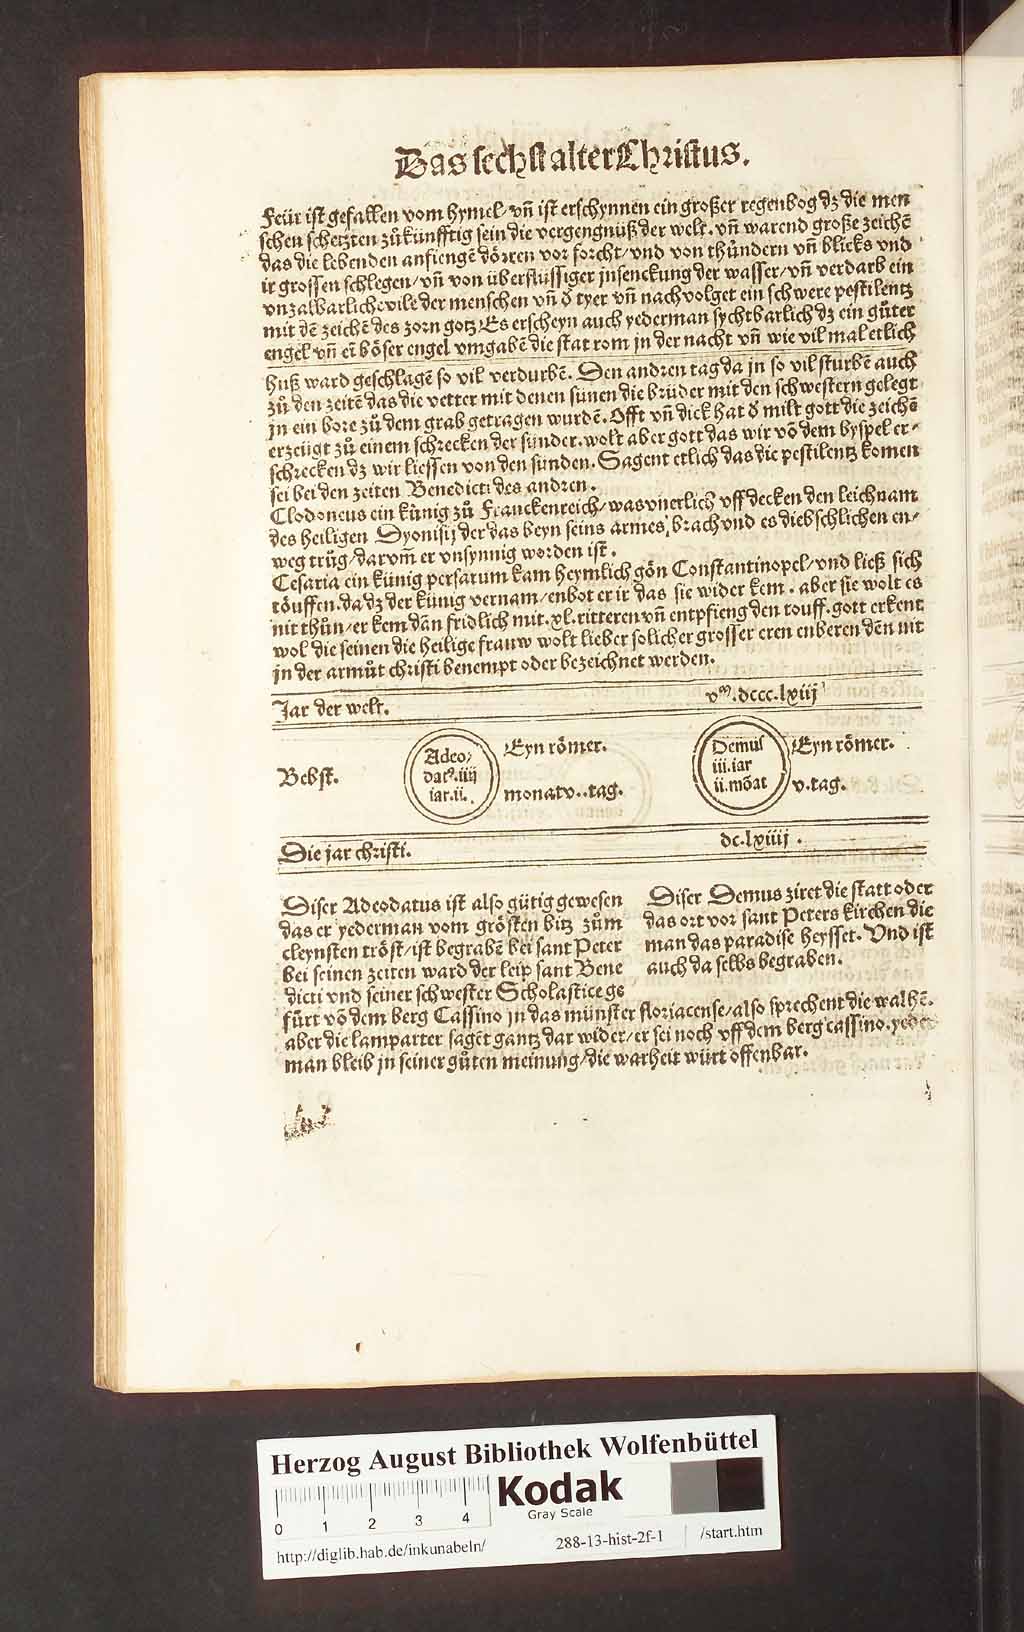 Das sechst alter Christus.
Feür ist gefallen vom hymel/ vn̄ ist erschynnen ein großer regenbog dz die men
schen schetzten zůkünfftig sein die vergengnüß der welt. vn̄ warend große zeichē
das die lebenden anfiengē dörren vor forcht/ vnd von thůndern vn̄ blicks vnd
ir grossen schlegen/ vn̄ von überflüssiger jnsenckung der wasser/ vn̄ verdarb ein
vnzalbarliche vile der menschen vn̄ d̄ tyer vn̄ nachvolget ein schwere pestilentz
mit dē zeichē des zorn gotz/ Es erscheyn auch yederman sychtbarlich dz ein gůter
engel vn̄ ei̅ böser engel vmgabē die stat rom jn der nacht vn̄ wie vil mal etlich
huß ward geschlagē so vil verdurbē. Den andren tag da jn so vil sturbē auch
zů den zeitē das die vetter mit denen sünen die brüder mit den schwestern gelegt
jn ein bore zů dem grab getragen wurdē. Offt vn̄ dick hat d̄ milt gott die zeichē
erzeügt zů einem schrecken der sünder. wolt aber gott das wir vō dem byspel er-
schrecken dz wir liessen von den sunden. Sagent etlich das die pestilentz komen
sei bei den zeiten Benedicti des andren.
Clodoneus ein künig zů Franckenreich/ was vnerlich vff decken den leichnam
des heiligen Dyonisij der das beyn seins armes, brach vnd es diebschlichen en-
weg trůg/ darom̄ er vnsynnig worden ist.
Cesaria ein künig persarum kam heymlich gōn Constantinopel/ vnd ließ sich
töuffen. da dz der künig vernam/ enbot er ir das sie wider kem. aber sie wolt es
nit thůn/ er kem dān fridlich mit. xl. ritteren vn̄ entpfieng den touff. gott erkent
wol die seinen die heilige frauw wolt lieber solicher grosser eren enberen dēn nit
jn der armůt christi benempt oder bezeichnet werden.
Jar der welt. vᵐ. dccc. lxiij
Bebst.
Adeo/
datꝰ. iiij
iar. ii.
Eyn römer.
monat v.. tag.
Demus
iii. iar
ii. mōat
Eyn römer.
v. tag.
Die jar christi. dc. lxiiij.
Diser Adeodatus ist also gütig gewesen
das er yederman vom grösten bitz zům
cleynsten tröst/ ist begrabē bei sant Peter
bei seinen zeiten ward der leip sant Bene
dicti vnd seiner schwester Scholastice ge
Diser Demus ziret die statt oder
das ort vor sant Peters kirchen die
man das paradise heysset. Vnd ist
auch da selbs begraben.
fürt vō dem berg Cassino jn das münster floriacense/ also sprechent die walhē.
aber die lamparter sagēt gantz dar wider/ er sei noch vff dem berg cassino. yeder
man bleib jn seiner gůten meinung/ die warheit würt offenbar.
Herzog August Bibliothek Wolfenbüttel
Kodak
Gray Scale
0 1 2 3 4
http://diglib.hab.de/inkunabeln/ 288-13-hist-2f-1 /start.htm